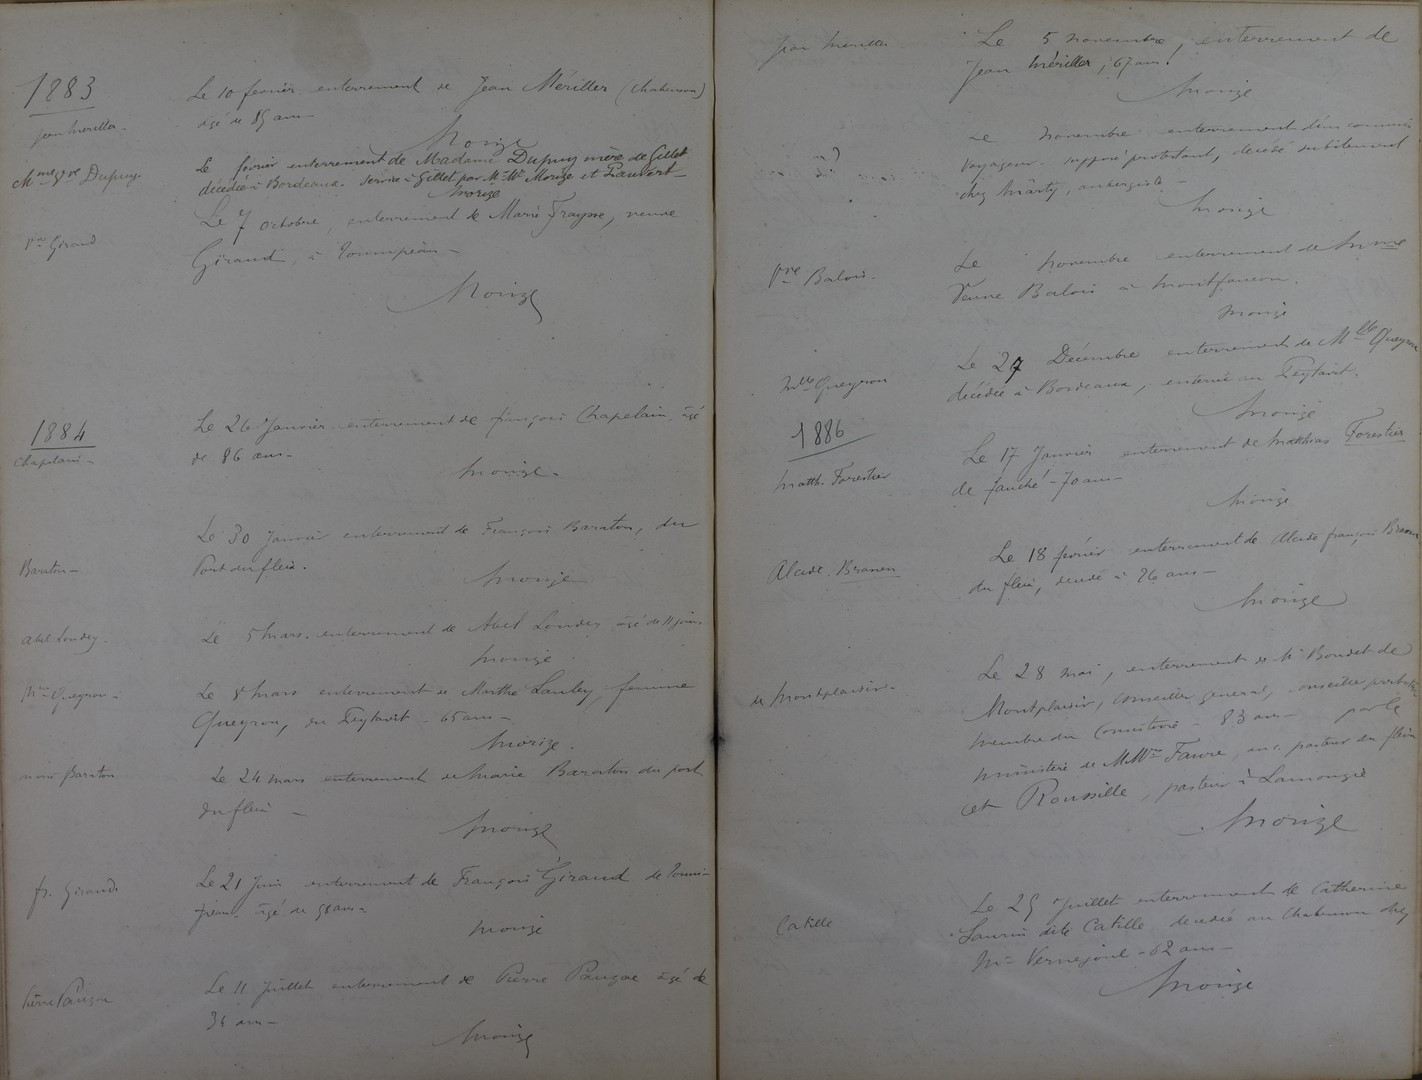 1883
Jean Meriller.
Le 10 fevrier enterrement de Jean Mériller (Chabenson)
agé de 85 ans —
Morize
Mme Vve Dupuy.
Le février enterrement de Madame Dupuy mère de Gillet
décédée à Bordeaux. Service à Gillet par M. Mrs Morize et
Morize
Vve Giraud
Le 7 octobre, enterrement de Marie Fraysse, veuve
Giraud, à
Morize
1884
Chapelain —
Le 26 Janvier enterrement de françois Chapelain, âgé
de 86 ans —
Morize.
Baraton —
Le 30 Janvier enterrement de François Baraton, du
Port du fleix.
Morize
Abel Londey.
Le 5 Mars. enterrement de Abel Londey âgé de 11 jours.
Morize
Queyrou —
Le 8 Mars enterrement de Marthe Lauley, femme
Queyrou, du Peytavit — 65 ans —
Morize.
Marie Baraton
Le 24 mars enterrement de Marie Baraton du port
du fleix —
Morize
fr. Giraud.
Le 21 Juin enterrement de François Giraud de
âgé de ans —
Morize
Pierre Pauzac
Le 11 Juillet enterrement de Pierre Pauzac âgé de
36 ans —
Morize
Jean Meriller
Le 5 novembre, enterrement de
Jean Mériller, 67 ans!
Morize
Le novembre enterrement d'un commis
voyageur supposé protestant, décédé subitement
chez Marty, aubergiste —
Morize
Vve Balois.
Le novembre enterrement de Mme
Veuve Balois à Montfaucon.
Morize
Mlle Queyrou
Le 27 Décembre enterrement de Mlle Queyrou
décédée à Bordeaux, enterrée au Peytavit.
Morize
1886
Matth. Forestier
Le 17 Janvier enterrement de Matthias Forestier
de fauché — 70 ans —
Morize
Alcide.
Le 18 février enterrement de Alcide françois
du fleix, décédé à 26 ans —
Morize
de Montplaisir.
Le 28 mai, enterrement de Mr Boudet de
Montplaisir, conseiller general, conseiller
membre du Consistoire — 83 ans — par le
ministère de M. Mrs Favre, anc. pasteur du fleix
et Roussille, pasteur à Lamonzie
Morize
Catille
Le 25 Juillet enterrement de Catherine
Laurin dite Catille décédée au Chabenson chez
Mr Vernejoul — 62 ans —
Morize